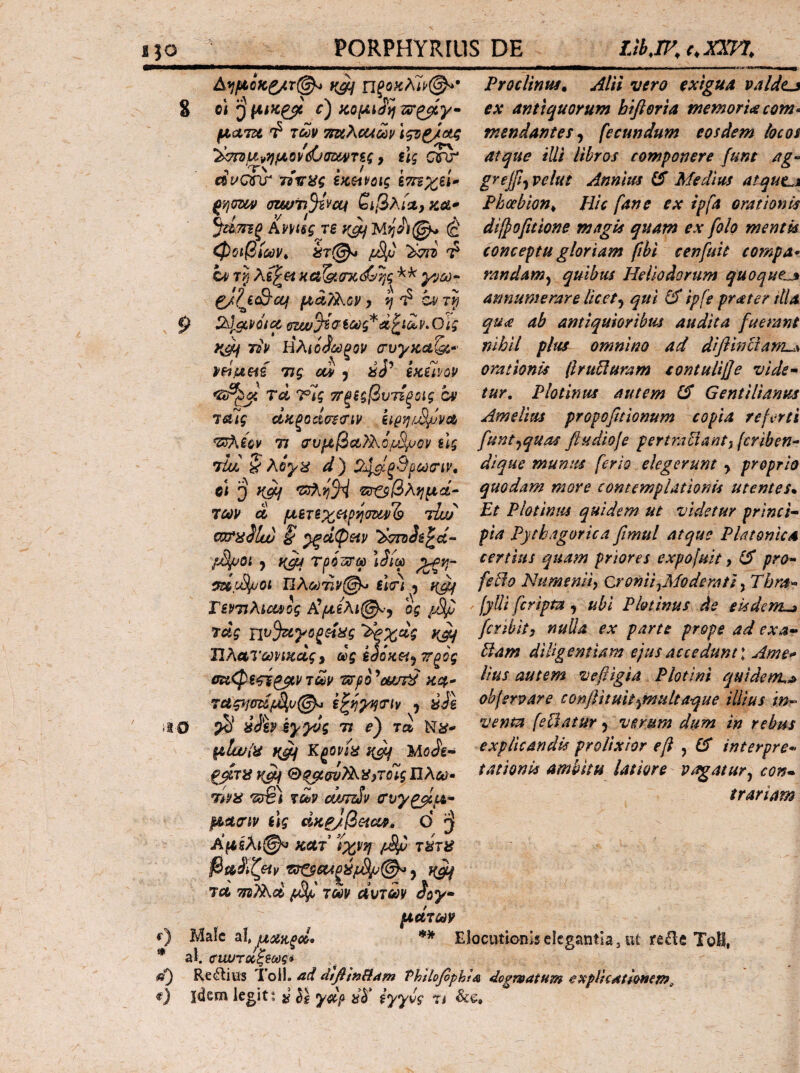 130 PORPHYRIUS DE Lib.IV. c. XXVI.
Δημόκριτος καὶ Προκλῖνος·
8 οἱ ῇ μικρὰ c) κομιδῇ πράγ-
ματα τ τῶν παλαιῶν ἱστορίας
ἀπομνημονεύσαντες, εἰς ταὐ-
τὰ τούτους ἐκείνοις ἐπεχεί-
ρησαν συντιθέναι βιβλία, κα-
θάπερ Ἄννιός τε καὶ Μήδιος &
Φοιβίων. οὗτος μὲν ἀπὸ τ
ἐν τῇ λέξει κατασκευῆς ** γνω-
ρίζεσθαι μᾶλλον, ἢ τ ἐν τῇ
9 διανοίᾳ συνθέσεως* ἀξιῶν. Οἷς
καὶ τὸν Ἡλιόδωρον συγκατα-
νείμειέ τις ἂν, οὐδ' ἐκεῖνον
παρὰ τὰ τοῖς πρεσβυτέροις ἐν
ταῖς ἀκροάσεσιν εἰρημένα
πλέον τι συμβαλλόμενον εἰς
τὴν τοῦ λόγου d) διάρθρωσιν.
οἱ ῇ καὶ πλήθει προβλημά-
των ἃ μετεχειρήσαντο τὴν
σπουδὴν τοῦ γράφειν ἀποδεξά-
μενοι, καὶ τρόπῳ ἰδίῳ χρη-
σάμενοι Πλωτῖνος εἰσὶ, καὶ
Γεντιλιανὸς Ἀμέλιος, ὃς μὲν
τὰς Πυθαγορείους ἀρχὰς καὶ
Πλατωνικὰς, ὡς ἐδόκει, πρὸς
σαφεστέραν τῶν πρὸ αὐτοῦ κα-
ταστησάμενος ἐξήγησιν, οὐδὲ
10 γὰρ οὐδὲν ἐγγύς τι e) τὰ Νου-
μηνίου καὶ Κρονίου καὶ Μοδε-
ράτου καὶ Θρασύλλου, τοῖς Πλω-
τίνου περὶ τῶν αὐτῶν συγγράμ-
μασιν εἰς ἀκρίβειαν. ὁ ῇ
Ἀμέλιος κατ' ἴχνη μὲν τούτου
βαδίζειν προαιρούμενος, καὶ
τὰ πολλὰ μὲν τῶν αὐτῶν δογ-
μάτων
Proclinus. Alii vero exigua valde
ex antiquorum historia memoriæ com-
mendantes, secundum eosdem locos
atque illi libros componere sunt ag-
gressi, velut Annius & Medius atque
Phœbion. Hic sane ex ipsa orationis
dispositione magis quam ex solo mentis
conceptu gloriam sibi censuit compa-
randam, quibus Heliodorum quoque
annumerare licet, qui & ipse præter illa
quæ ab antiquioribus audita fuerant
nihil plus omnino ad distinctam
orationis structuram contulisse vide-
tur. Plotinus autem & Gentilianus
Amelius propositionum copia referti
sunt, quas studiose pertractant, scriben-
dique munus serio elegerunt, proprio
quodam more contemplationis utentes.
Et Plotinus quidem ut videtur princi-
pia Pythagorica simul atque Platonica
certius quam priores exposuit, & pro-
fecto Numenii, Cronii, Moderati, Thra-
sylli scripta, ubi Plotinus de eisdem
scribit, nulla ex parte prope ad exa-
ctam diligentiam ejus accedunt: Ame-
lius autem vestigia Plotini quidem
observare constituit, multaque illius in-
venta sectatur, verum dum in rebus
explicandis prolixior est, & interpre-
tationis ambitu latiore vagatur, con-
trariam
c) Male al. μακρὰ. ** Elocutionis elegantia, ut recte Toll,
* al. συντάξεως.
d) Rectius Toll. ad distinctam Philosophiæ dogmatum explicationem.
e) Idem legit: οὐ δὲ γὰρ οὐδ' ἐγγύς τι &c.